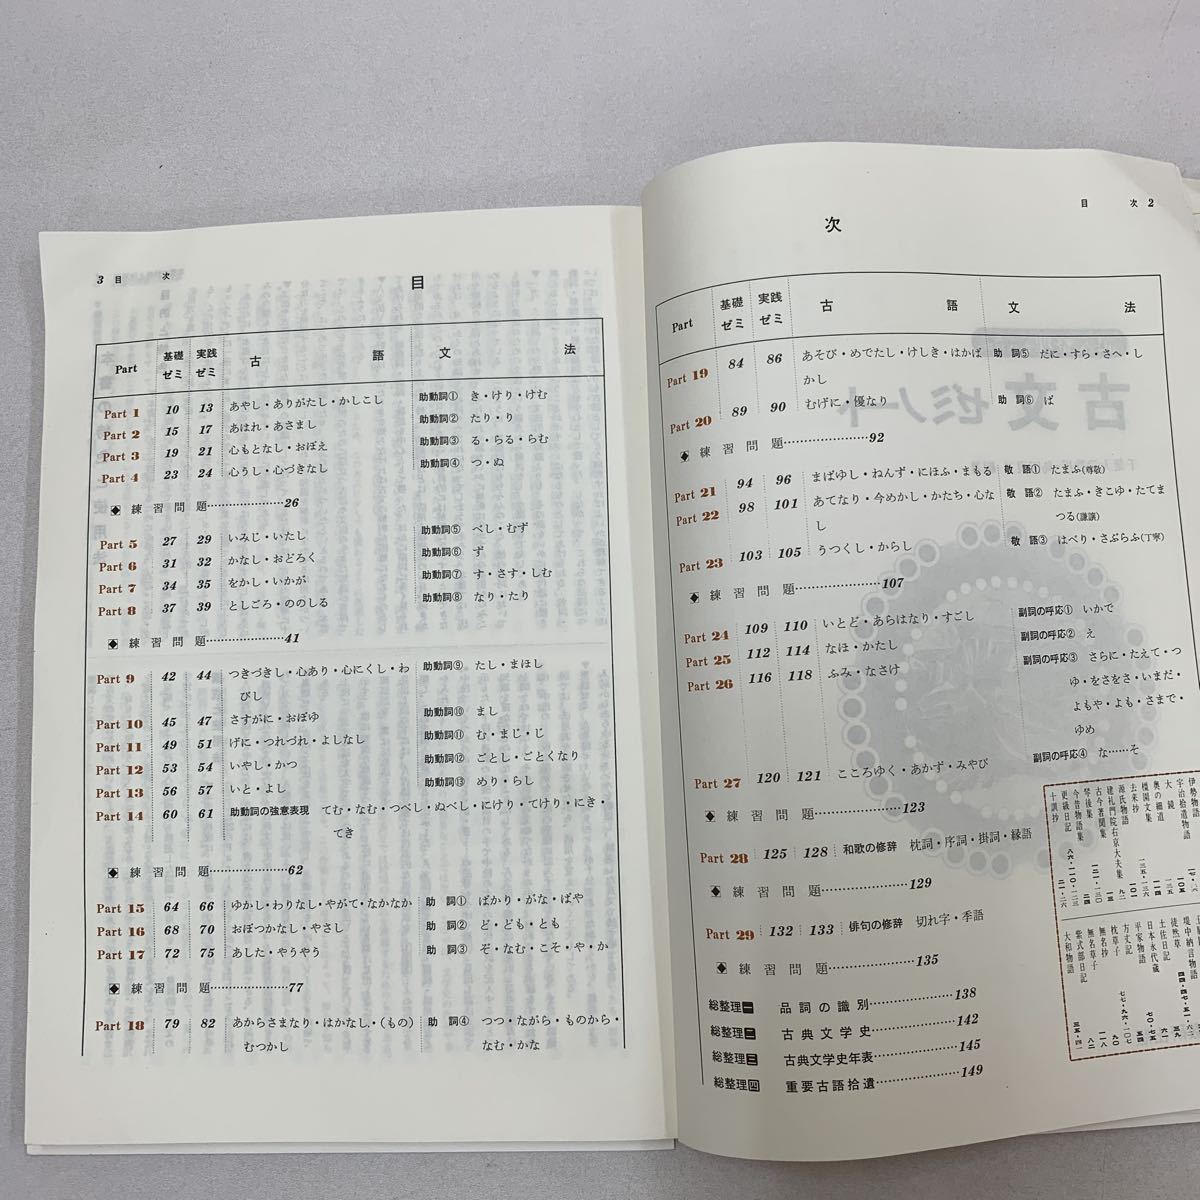 3 目　次
目
Part 基礎ゼミ 実践ゼミ 古語 文法
Part 1 10 13 あやし・ありがたし・かしこし 助動詞① き・けり・けむ
Part 2 15 17 あはれ・あさまし 助動詞② たり・り
Part 3 19 21 心もとなし・おぼえ 助動詞③ る・らる・らむ
Part 4 23 24 心うし・心づきなし 助動詞④ つ・ぬ
練習問題…………………26
Part 5 27 29 いみじ・いたし 助動詞⑤ べし・むず
Part 6 31 32 かなし・おどろく 助動詞⑥ ず
Part 7 34 35 をかし・いかが 助動詞⑦ す・さす・しむ
Part 8 37 39 としごろ・ののしる 助動詞⑧ なり・たり
練習問題…………………41
Part 9 42 44 つきづきし・心あり・心にくし・わ 助動詞⑨ たし・まほし
びし
Part 10 45 47 さすがに・おぼゆ 助動詞⑩ まし
Part 11 49 51 げに・つれづれ・よしなし 助動詞⑪ む・まじ・じ
Part 12 53 54 いやし・かつ 助動詞⑫ ごとし・ごとくなり
Part 13 56 57 いと・よし 助動詞⑬ めり・らし
Part 14 60 61 助動詞の強意表現 てむ・なむ・つべし・ぬべし・にけり・てけり・にき・
てき
練習問題…………………62
Part 15 64 66 ゆかし・わりなし・やがて・なかなか 助詞① ばかり・がな・ばや
Part 16 68 70 おぼつかなし・やさし 助詞② ど・ども・とも
Part 17 72 75 あした・やうやう 助詞③ ぞ・なむ・こそ・や・か
練習問題…………………77
Part 18 79 82 あからさまなり・はかなし・(もの) 助詞④ つつ・ながら・ものから・
むつかし なむ・かな
目　次 2
次
Part 基礎ゼミ 実践ゼミ 古語 文法
Part 19 84 86 あそび・めでたし・けしき・はかば 助詞⑤ だに・すら・さへ・し
かし
Part 20 89 90 むげに・優なり 助詞⑥ ば
練習問題…………………92
Part 21 94 96 まばゆし・ねんず・にほふ・まもる 敬語① たまふ(尊敬)
Part 22 98 101 あてなり・今めかし・かたち・心な 敬語② たまふ・きこゆ・たてま
し つる(謙譲)
Part 23 103 105 うつくし・からし 敬語③ はべり・さぶらふ(丁寧)
練習問題…………………107
Part 24 109 110 いとど・あらはなり・すごし 副詞の呼応① いかで
Part 25 112 114 なほ・かたし 副詞の呼応② え
Part 26 116 118 ふみ・なさけ 副詞の呼応③ さらに・たえて・つ
ゆ・をさをさ・いまだ・
よもや・よも・さまで・
ゆめ
Part 27 120 121 こころゆく・あかず・みやび 副詞の呼応④ な……そ
練習問題…………………123
Part 28 125 128 和歌の修辞 枕詞・序詞・掛詞・縁語
練習問題…………………129
Part 29 132 133 俳句の修辞 切れ字・季語
練習問題…………………135
総整理一 品詞の識別…………………138
総整理二 古典文学史…………………142
総整理三 古典文学史年表…………………145
総整理四 重要古語拾遺…………………149
伊勢物語
宇治拾遺物語
大鏡
奥の細道
槐園文集
去来抄
源氏物語
建礼門院右京大夫集
古今著聞集
琴後集
今昔物語集
更級日記
十訓抄
堤中納言物語
徒然草
土佐日記
日本永代蔵
平家物語
方丈記
枕草子
無名抄
無名草子
紫式部日記
大和物語
古文ゼミノート